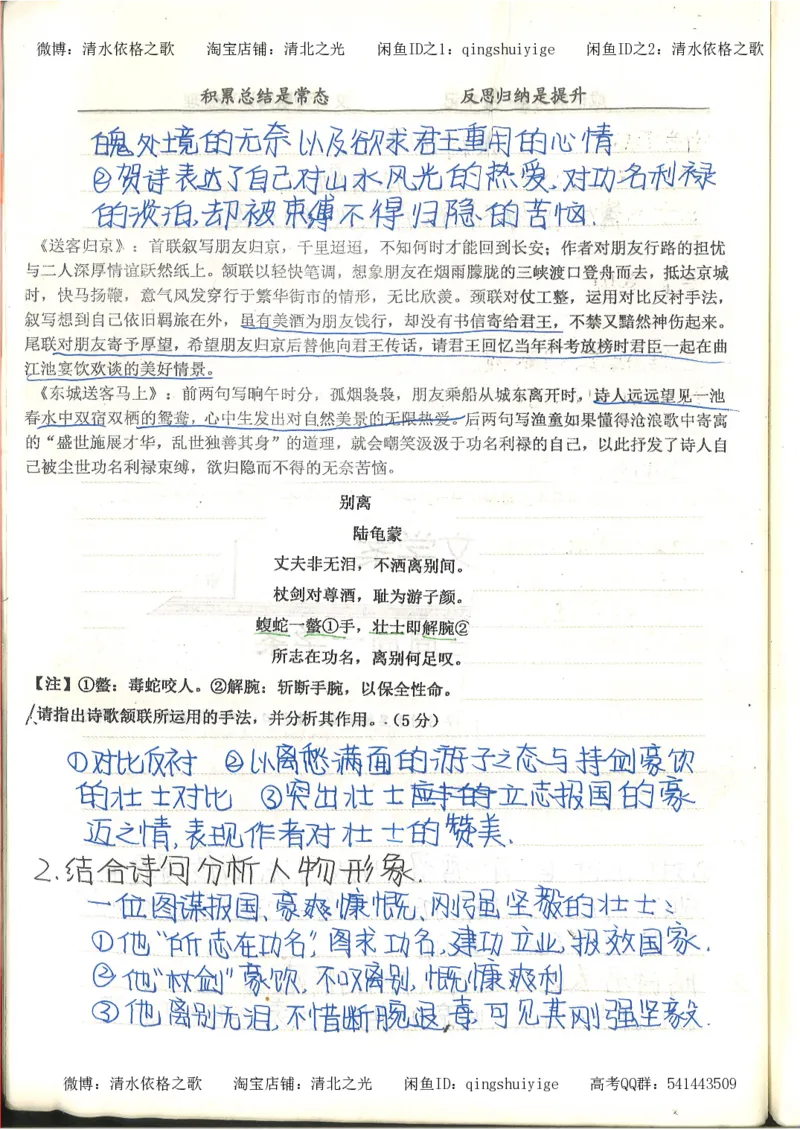 微博：清水依格之歌　　淘宝店铺：清北之光　　闲鱼ID之1：qingshuiyige　　闲鱼ID之2：清水依格之歌
积累总结是常态　　反思归纳是提升
魄外境的无奈以及欲求君王重用的心情
②贺诗表达了自己对山水风光的热爱，对功名利禄
的淡泊，却被束缚不得归隐的苦恼．
《送客归京》：首联叙写朋友归京，千里迢迢，不知何时才能回到长安；作者对朋友行路的担忧
与二人深厚情谊跃然纸上。颔联以轻快笔调，想象朋友在烟雨朦胧的三峡渡口登舟而去，抵达京城
时，快马扬鞭，意气风发穿行于繁华街市的情形，无比欣羡。颈联对仗工整，运用对比反衬手法，
叙写想到自己依旧羁旅在外，虽有美酒为朋友饯行，却没有书信寄给君王，不禁又黯然神伤起来。
尾联对朋友寄予厚望，希望朋友归京后替他向君王传话，请君王回忆当年科考放榜时君臣一起在曲
江池宴饮欢谈的美好情景。
《东城送客马上》：前两句写晌午时分，孤烟袅袅，朋友乘船从城东离开时，诗人远远望见一池
春水中双宿双栖的鸳鸯，心中生发出对自然美景的无限热爱。后两句写渔童如果懂得沧浪歌中寄寓
的“盛世施展才华，乱世独善其身”的道理，就会嘲笑汲汲于功名利禄的自己，以此抒发了诗人自
己被尘世功名利禄束缚，欲归隐而不得的无奈苦恼。
别离
陆龟蒙
丈夫非无泪，不洒离别间。
杖剑对尊酒，耻为游子颜。
蝮蛇一螫①手，壮士即解腕②
所志在功名，离别何足叹。
【注】①螫：毒蛇咬人。②解腕：斩断手腕，以保全性命。
1.请指出诗歌颔联所运用的手法，并分析其作用。（5分）
①对比反衬　②以离愁满面的游子之态与持剑豪饮
的壮士对比　③突出壮士立志报国的豪
迈之情，表现作者对壮士的赞美．
2.结合诗句分析人物形象．
一位图谋报国、豪爽慷慨、刚强坚毅的壮士：
①他“所志在功名”，图求功名，建功立业，报效国家．
②他“杖剑”豪饮，不叹离别，慨慷爽利
③他离别无泪，不惜断腕退毒，可见其刚强坚毅．
微博：清水依格之歌　　淘宝店铺：清北之光　　闲鱼ID：qingshuiyige　　高考QQ群：541443509